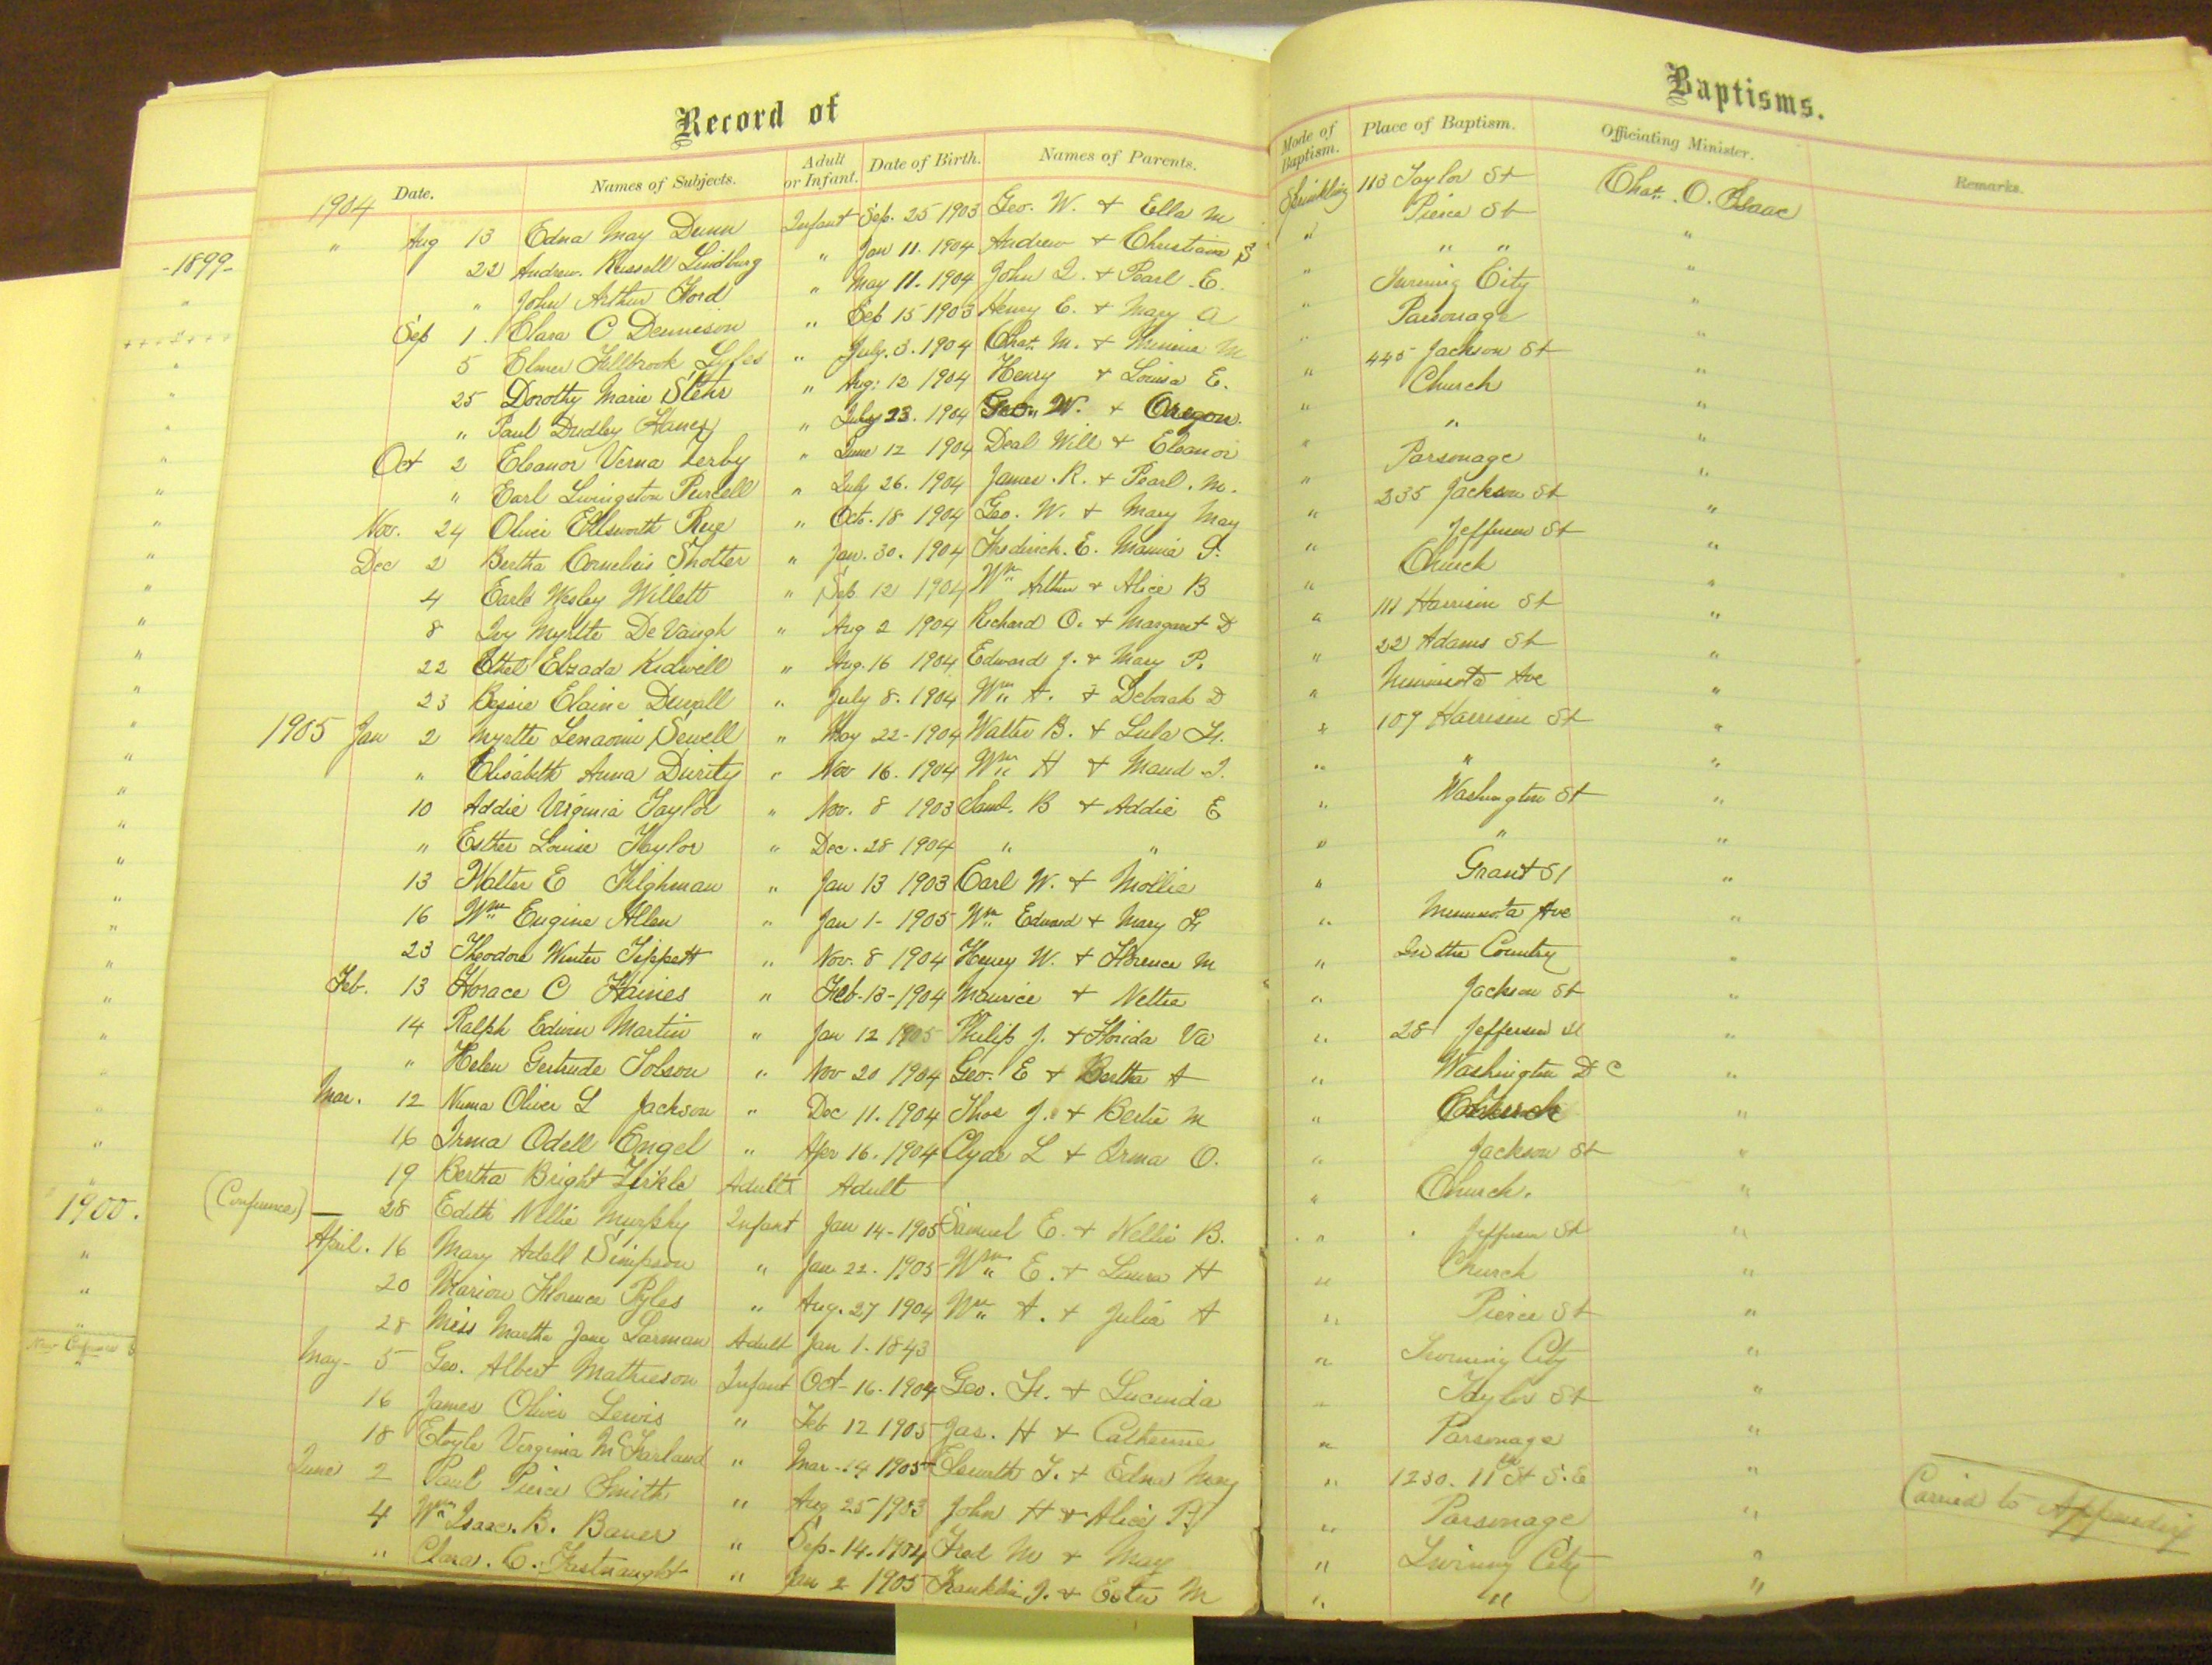 Record of Baptisms.
Date. Names of Subjects. Adult or Infant. Date of Birth. Names of Parents. Mode of Baptism. Place of Baptism. Officiating Minister. Remarks.
1904 Aug 13 Edna May Dunn Infant Sep. 25 1903 Geo. W. & Ella M Sprinkling 113 Taylor St Chas. O. Isaac
" 22 Andrew Russell Lindburg " Jan 11. 1904 Andrew & Christiana S " Pierce St "
" John Arthur Ford " May 11. 1904 John & Pearl E. " " " "
Sep 1. Clara C Dennison " Feb 15 1903 Henry E. & Mary A " City "
5 Elmer " July. 3. 1904 Chas. M. & M " Parsonage "
25 Dorothy Marie Stehr " Aug: 12 1904 Henry & Louisa E. " 445 Jackson St "
" Paul Dudley " July 23. 1904 Geo. W. & Oregon. " Church "
Oct 2 Eleanor Verna Zerby " June 12 1904 Deal Will & Eleanor " " "
" Earl Livingston Purcell " July 26. 1904 James. R. & Pearl. M. " Parsonage "
Nov. 24 Oliver Ellsworth Rue " Oct. 18 1904 Geo. W. & Mary May " 235 Jackson St "
Dec 2 Bertha Cornelius " Jan. 30. 1904 Fredrick. E. " Jefferson St "
4 Earle Wesley Willett " Feb 12 1904 Wm Arthur & Alice B " Church "
8 Ivy Myrtle De Vaugh " Aug 2 1904 Richard O. & Margaret D " 111 Harrison St "
22 Ethel Elzada Kidwell " Aug. 16 1904 Edward J. & Mary P. " 22 Adams St "
23 Bessie Elaine Duvall " July 8. 1904 Wm A. & Deborah D " Minnisota Ave "
1905 Jan 2 Myrtle Sewell " May 22-1904 Walter B. & Lula " 109 Harrison St "
" Elisabeth Anna Durity " Nov 16. 1904 Wm H & Maud " " "
10 Addie Virginia Taylor " Nov. 8 1903 Saml. B & Addie E " Washington St "
" Esther Louise Taylor " Dec. 28 1904 " " " " "
13 Walter E Tilghman " Jan 13 1903 Carl W. & Mollie " Grant St "
16 Wm Eugine Allen " Jan 1-1905 Wm Edward & Mary " Minnisota Ave "
23 Theodore Winter Tippett " Nov. 8 1904 Henry W. & Florence M " In the Country "
Feb. 13 Horace C Haines " Feb-13-1904 Maurice & Nettie " Jackson St "
14 Ralph Edwin Martin " Jan 12 1905 Philip J. & Florida Va " 28 Jefferson St "
" Helen Gertrude Tolson " Nov 20 1904 Geo. E & Bertha A " Washington D C "
Mar. 12 Numa Oliver L Jackson " Dec 11. 1904 Thos J. & Bertie M " Church "
16 Irma Odell Engel " Apr 16. 1904 Clyde L & Irma O. " Jackson St "
19 Bertha Bright Zirkle Adult Adult " Church. "
(Conference) 28 Edith Nellie Murphy Infant Jan 14-1905 Samuel E. & Nellie B. " Jefferson St "
April. 16 Mary Adell Simpson " Jan 22. 1905 Wm E. & Laura H " Church "
20 Marion Florence Pyles " Aug. 27 1904 Wm A. & Julia A " Pierce St "
28 Miss Martha Jane Larman Adult Jan 1. 1843 " City "
May- 5 Geo. Albert Mathieson Infant Oct-16. 1904 Geo. & Lucinda Taylor St "
16 James Oliver Lewis " Feb 12 1905 Jas. H & Catherine " Parsonage "
18 Etoyle Virginia McFarland " Mar-14 1905 & Edna May " 1230. 11th St S. E "
June 2 Paul Pierce Smith " Aug 25 1903 John H & Alice " Parsonage "
4 Wm Isaac. B. Bauer " Sep-14. 1904 Fred M & May " City "
" Clara. C. Fastnaught " Jan 2 1905 Franklin J. & M " " "
Carried to Appendix
-1899-
1900.